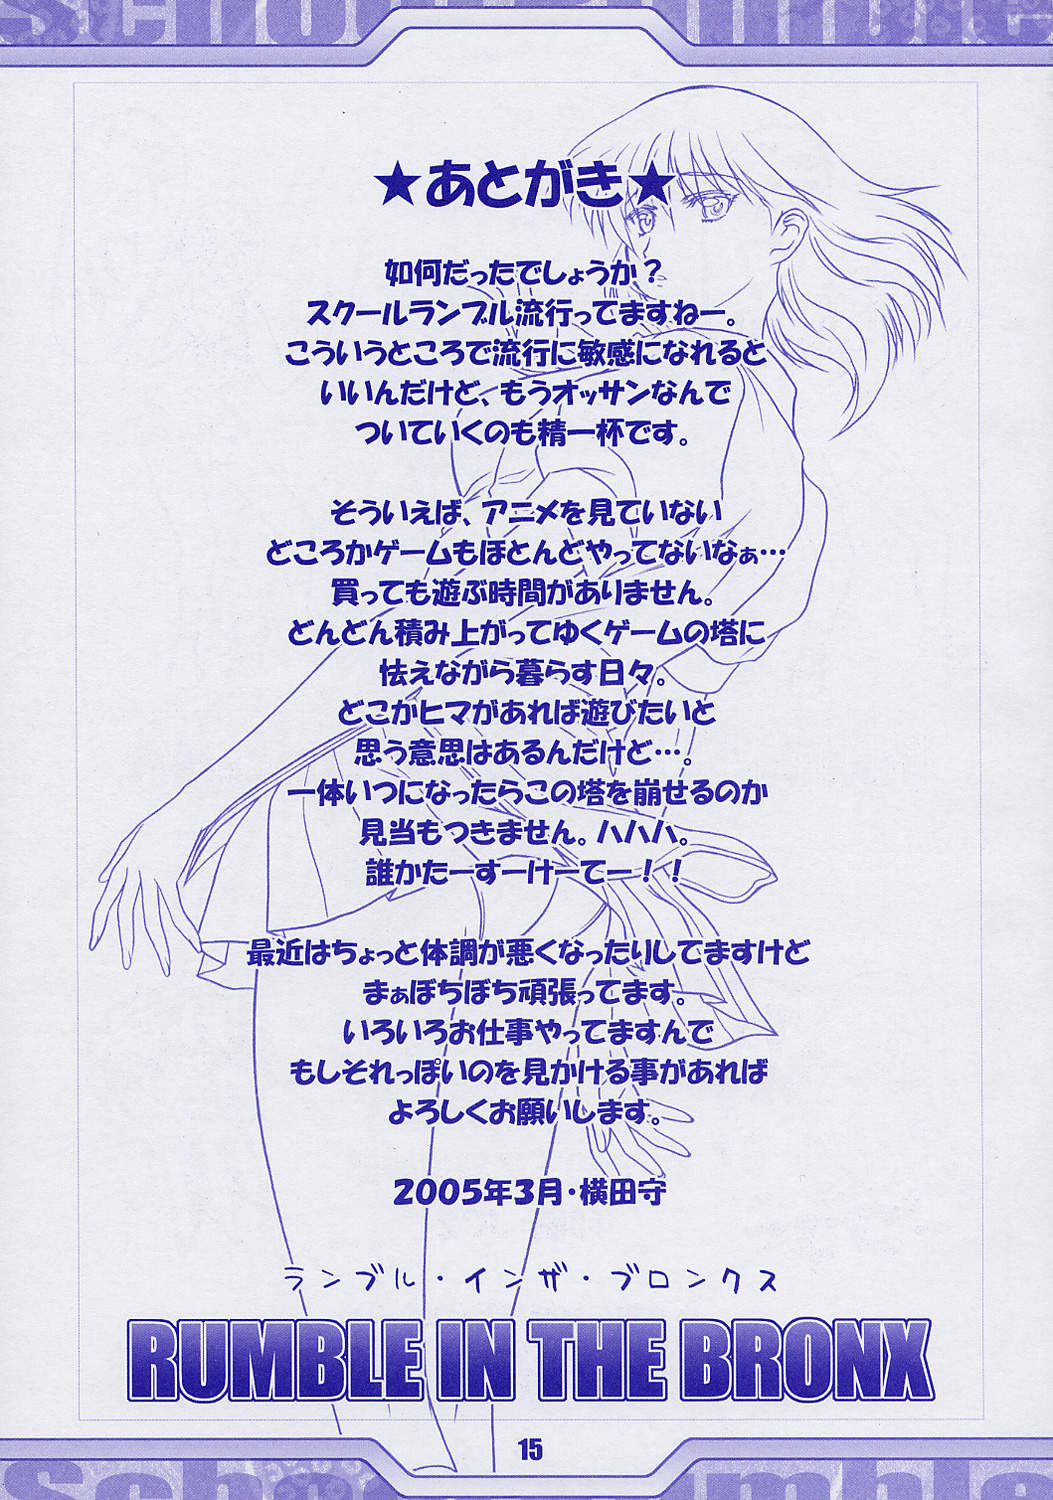 School Rumble
★あとがき★
如何だったでしょうか？
スクールランブル流行ってますねー。
こういうところで流行に敏感になれると
いいんだけど、もうオッサンなんで
ついていくのも精一杯です。
そういえば、アニメを見ていない
どころかゲームもほとんどやってないなぁ…
買っても遊ぶ時間がありません。
どんどん積み上がってゆくゲームの塔に
怯えながら暮らす日々。
どこかヒマがあれば遊びたいと
思う意思はあるんだけど…。
一体いつになったらこの塔を崩せるのか
見当もつきません。ハハハ。
誰かたーすーけーてー！！
最近はちょっと体調が悪くなったりしてますけど
まぁぼちぼち頑張ってます。
いろいろお仕事やってますんで
もしそれっぽいのを見かける事があれば
よろしくお願いします。
2005年3月・横田守
ランブル・インザ・ブロンクス
RUMBLE IN THE BRONX
15
School Rumble